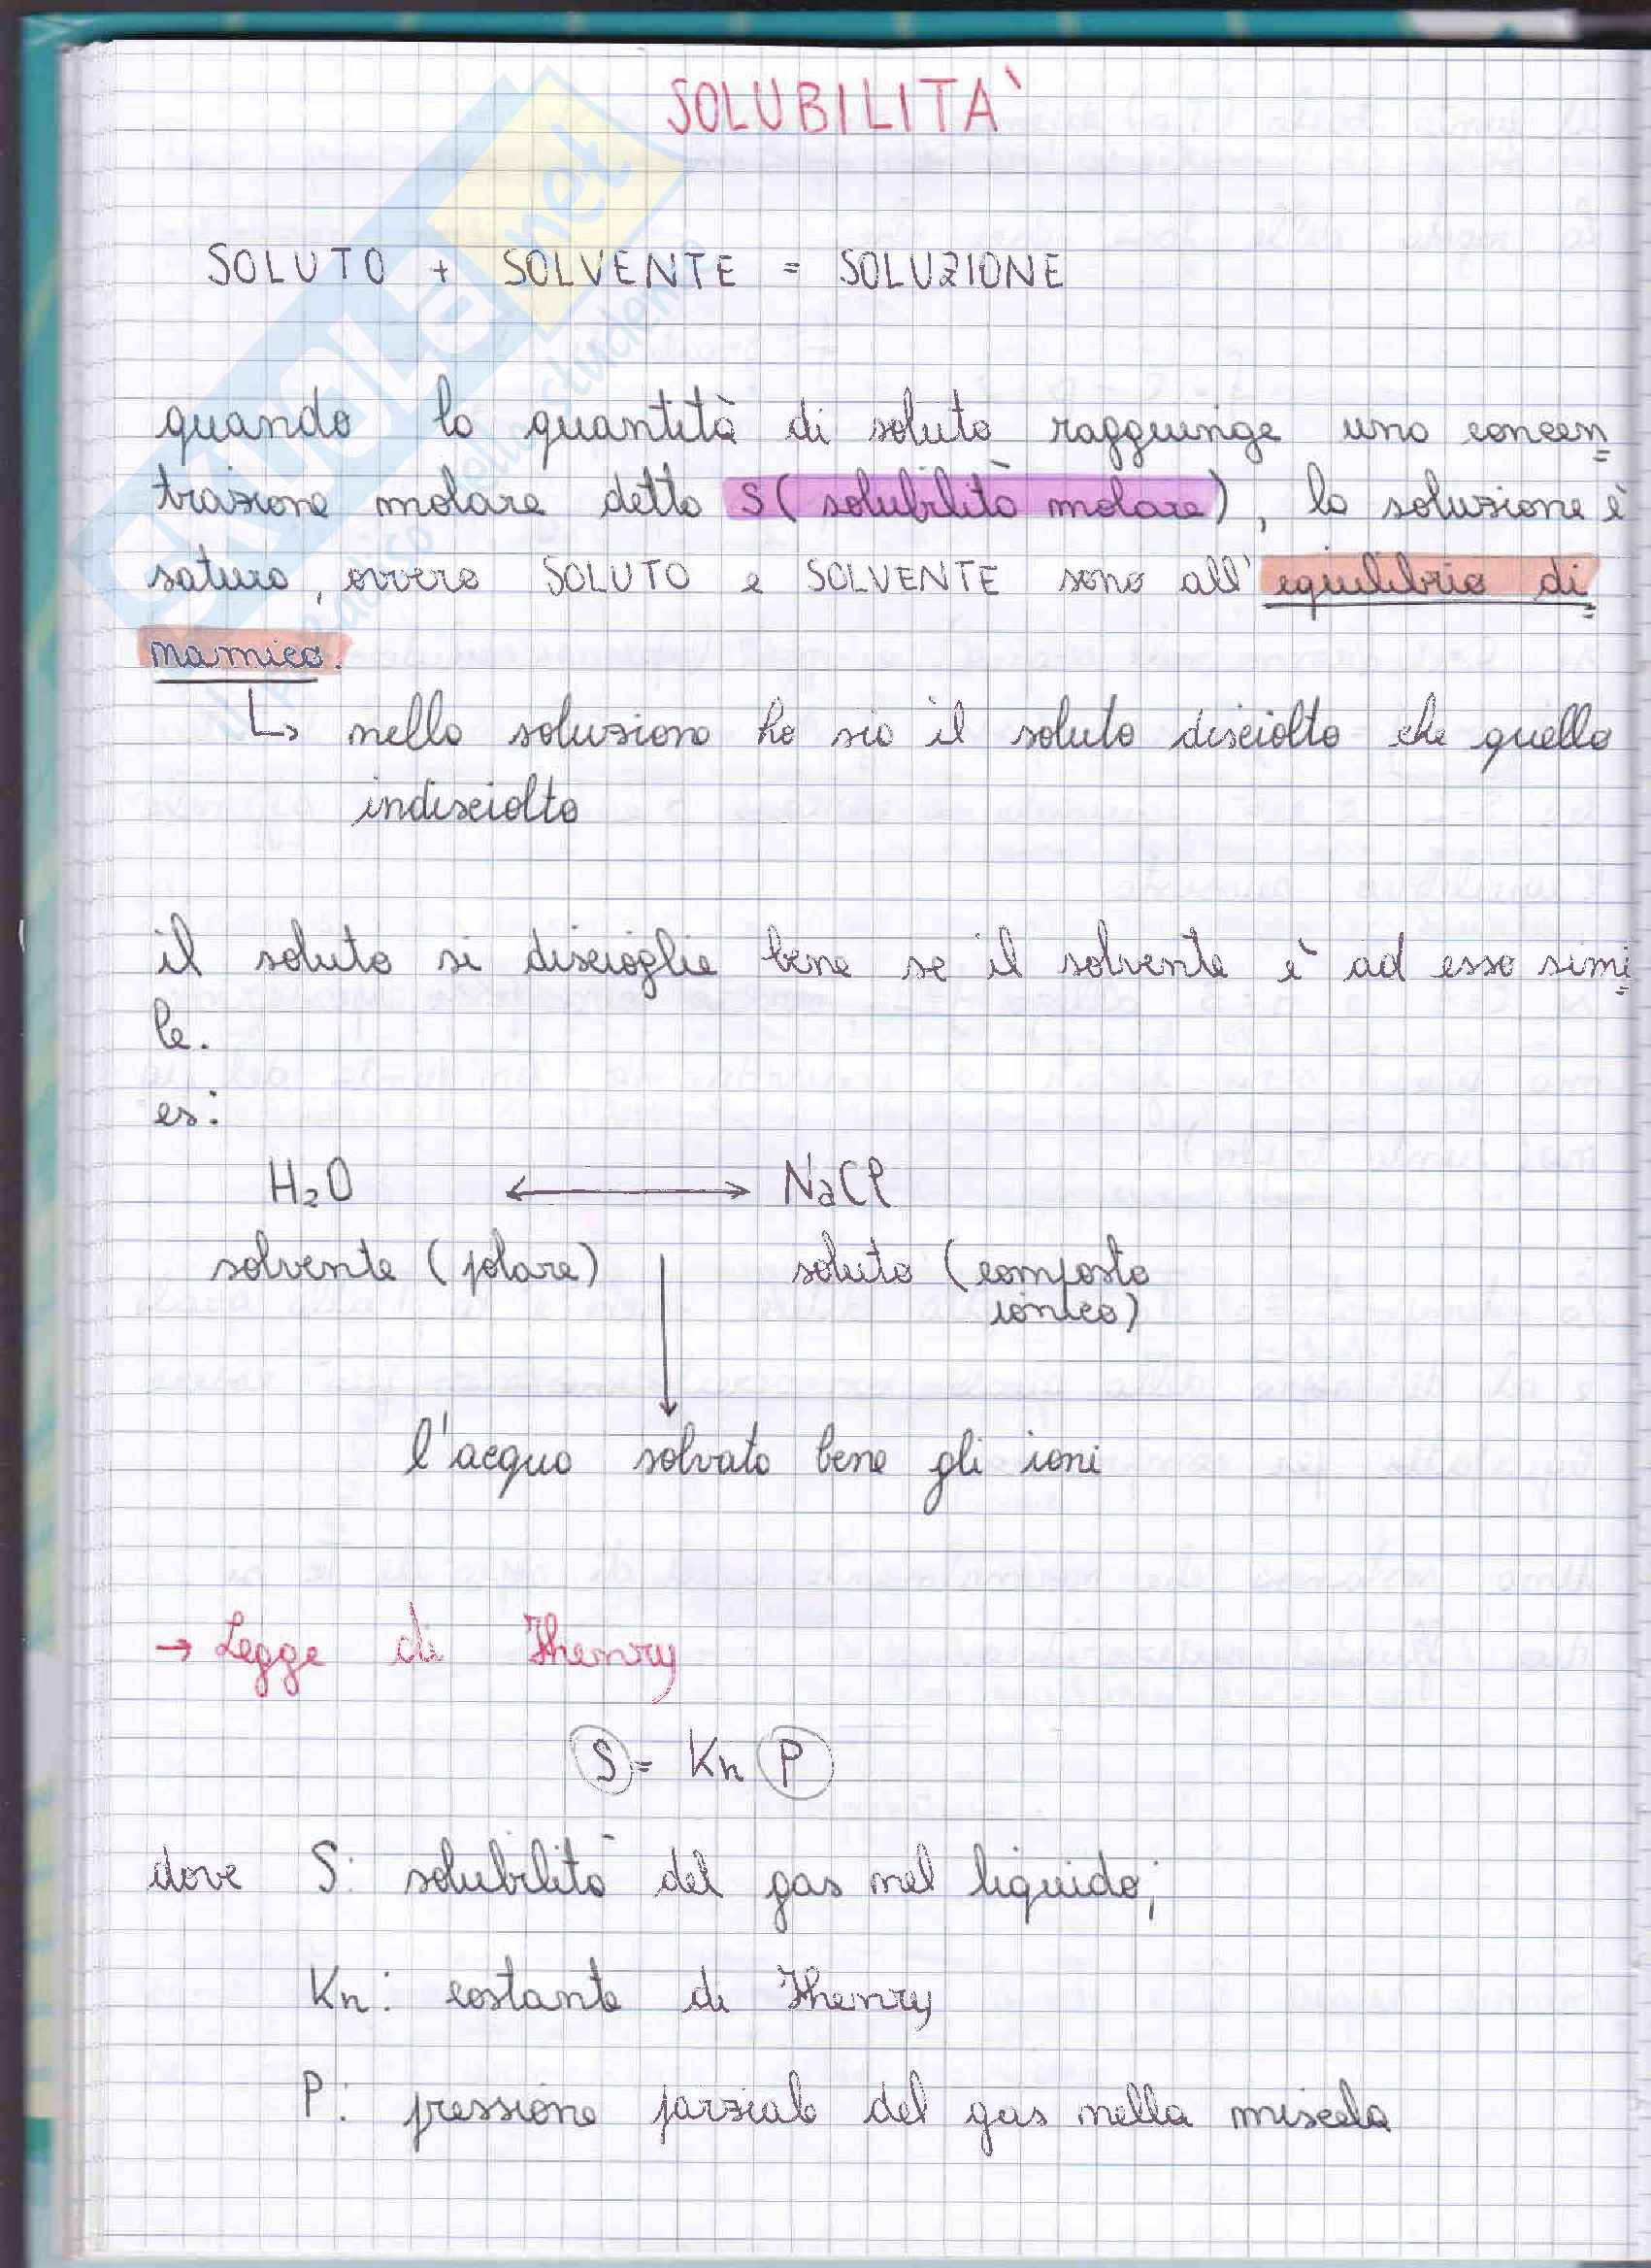 SOLUBILITÀ
SOLUTO + SOLVENTE = SOLUZIONE
quando la quantità di soluto raggiunge una concen
trazione molare detta S (solubilità molare), la soluzione è
satura, ovvero SOLUTO e SOLVENTE sono all'equilibrio di
namico.
↳ nella soluzione ho sia il soluto disciolto che quello
indisciolto
il soluto si discioglie bene se il solvente è ad esso simi
le.
es:
H₂O ⟷ NaCl
solvente (polare) soluto (composto
ionico)
l'acqua solvata bene gli ioni
→ Legge di Hhenry
S = KH P
dove S: solubilità del gas nel liquido;
KH: costante di Hhenry
P: pressione parziale del gas nella miscela
SKUOLA.net
il paradiso dello studente